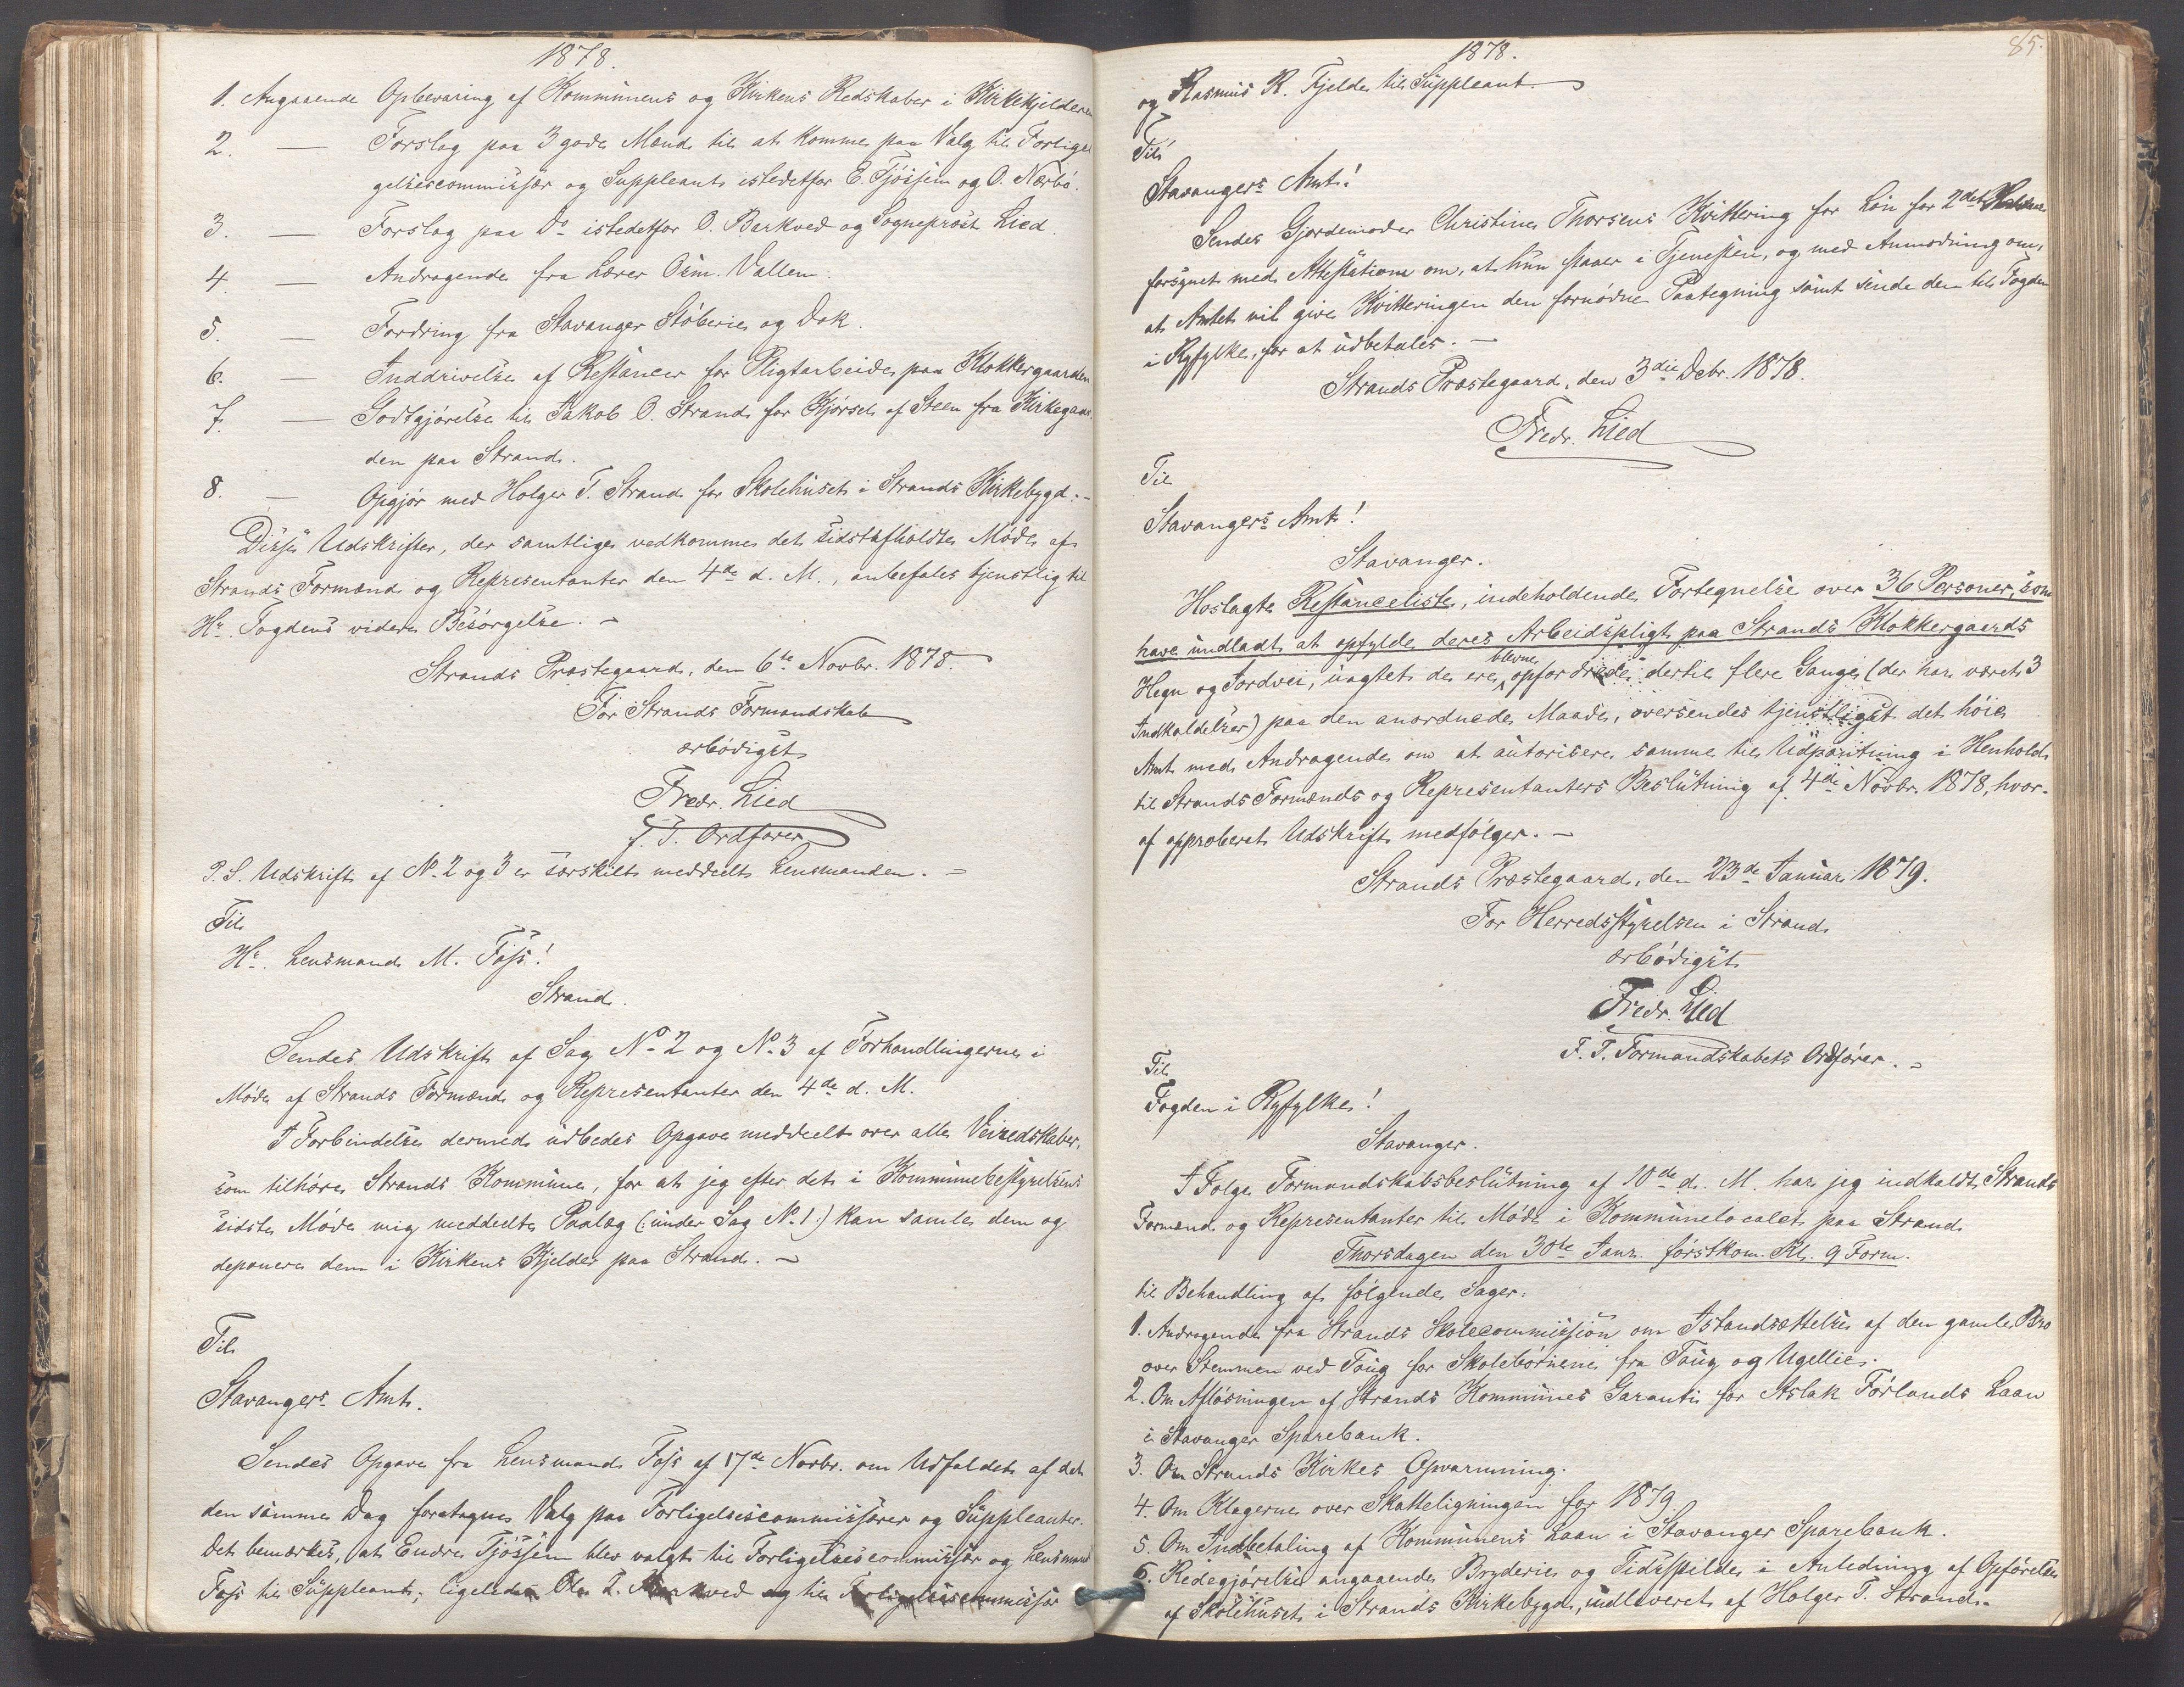 1878.
1. Angaaende Opbevaring af Kommunens og Kirkens Redskaber i Kirkekjelderen
2. — Forslag paa 3 gode Mænd til at komme paa Valg til Forli-
gelsescommissær og Suppleant istedetfor E. Tjössem og O. Nærbö.
3. — Forslag paa Do istedetfor O. Barkved og Sogneprest Lied.
4. — Andragende fra Lærer Osm. Vallem.
5. — Fordring fra Stavanger Stöberie og Dok.
6. — Inddrivelse af Restancer for Pligtarbeide paa Klokkergaarden
7. — Godtgjörelse til Jakob O. Strand for Kjörsel af Steen fra Kirkegaar-
den paa Strand.
8. — Opgjör med Holger T. Strand for Skolehuset i Strands Kirkebygd. -
Disse Udskrifter, der samtlige vedkomme det sidstafholdte Möde af
Strands Formænd og Repræsentanter den 4de d. M., anbefales tjenstlig til
Hr. Fogdens videre Besörgelse. -
Strands Præstegaard, den 6te Novbr. 1878.
For Strands Formandskab
ærbödigst
Fredr. Lied
f. T. Ordförer
P. S. Udskrift af No 2 og 3 er særskilt meddeelt Lensmanden. -
Til
Hr. Lensmand M. Foss!
Strand.
Sendes Udskrift af Sag No 2 og No 3 af Forhandlingerne i
Möde af Strands Formænd og Repræsentanter den 4de d. M.
I Forbindelse dermed udbedes Opgave meddeelt over alle Veiredskaber,
som tilhöre Strands Kommune, for at jeg efter det i Kommunebestyrelsens
sidste Möde mig meddeelte Paalæg (: under Sag No 1 :) kan samle dem og
deponere dem i Kirkens Kjelder paa Strand. -
Til
Stavangers Amt.
Sendes Opgave fra Lensmand Foss af 17de Novbr. om Udfaldet af det
den samme Dag foretagne Valg paa Forligelsescommissærer og Suppleanter.
Det bemærkes, at Endre Tjössem blev valgt til Forligelsescommissær og Lensmand
Foss til Suppleant; ligeledes Barkved og til Forligelsescommissær
85.
1878.
og Rasmus R. Fjelde til Suppleant.
Til
Stavangers Amt!
Sendes Gjordemoder Christine Thorsens Kvittering for Lön for 2det
forsynet med Attestation om, at hun staaer i Tjenesten, og med Anmodning om,
at Amtet vil give Kvitteringen den fornödne Paategning samt sende den til Fogden
i Ryfylke, for at udbetales. -
Strands Præstegaard, den 3die Debr. 1878.
Fredr. Lied
Til
Stavangers Amt!
Stavanger.
Hoslagte Restanceliste, indeholdende Fortegnelse over 36 Personer, som
have undladt at opfylde deres Arbeidspligt paa Strands Klokkergaards
Hegn og Jordvei, uagtet de ere blevne opfordrede dertil flere Gange (der har været 3
Indkaldelser) paa den anordnede Maade, oversendes tjenstligst det höie
Amt med Andragende om at autorisere samme til Udpantning i Henhold
til Strands Formænds og Repræsentanters Beslutning af 4de Novbr. 1878, hvor-
af approberet Udskrift medfölger. -
Strands Præstegaard, den 23de Januar 1879.
For Herredsstyrelsen i Strand
ærbödigst
Fredr. Lied
F. T. Formandskabets Ordförer. -
Til
Fogden i Ryfylke!
Stavanger.
I Fölge Formandskabsbeslutning af 10de d. M. har jeg indkaldt Strands
Formænd og Repræsentanter til Möde i Kommunelocalet paa Strand
Thorsdagen den 30te Janr. förstkom. Kl. 9 Form.
til Behandling af fölgende Sager:
1. Andragende fra Strands Skolecommission om Istandsættelse af den gamle Bro
over Stemmen ved Toug for Skolebörnene fra Toug og Ugelie.
2. Om Aflösningen af Strands Kommunes Garanti for Aslak Förlands Laan
i Stavanger Sparebank.
3. Om Strands Kirkes Opvarmning.
4. Om Klagerne over Skatteligningen for 1879.
5. Om Indbetaling af Kommunens Laan i Stavanger Sparebank.
6. Redegjörelse angaaende Bryderie og Tidsspilde i Anledning af Opförelse
af Skolehuset i Strands Kirkebygd, indleveret af Holger T. Strand.